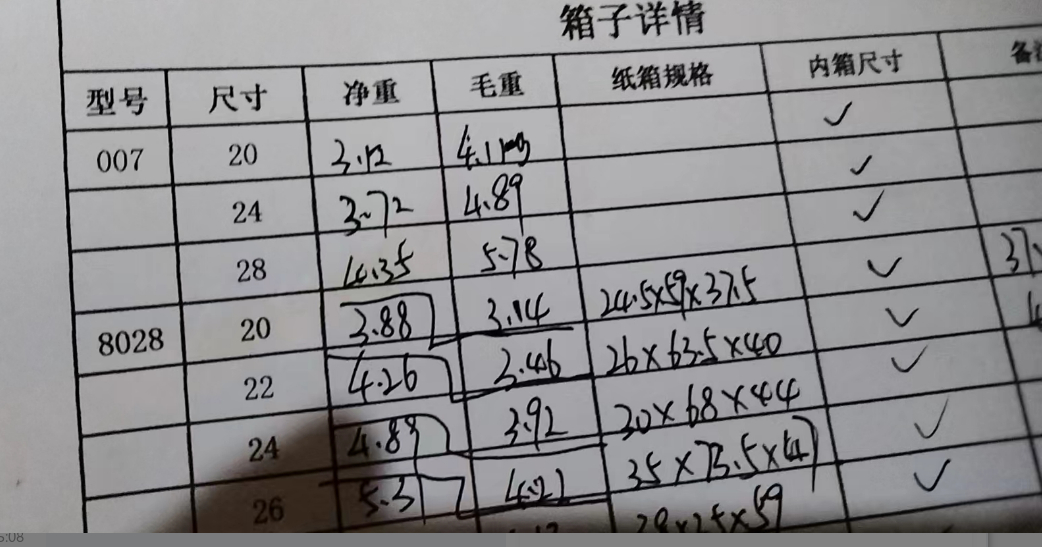 箱子详情
型号 尺寸 净重 毛重 纸箱规格 内箱尺寸
007 20 3.12 ✓
24 3.72 4.89 ✓
28 4.35 5.78 ✓
8028 20 3.88 3.14 24.5×59×37.5 ✓
22 4.26 3.46 26×63.5×40 ✓
24 4.89 3.92 30×68×44 ✓
26 5.31 4.21 ✓
✓